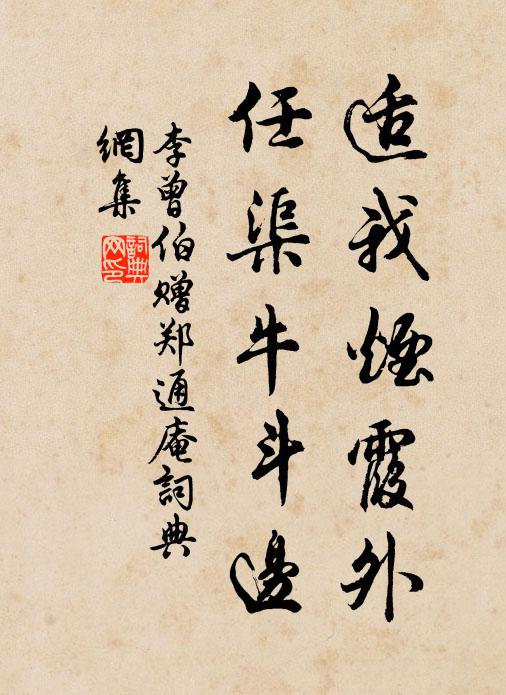 适我烟霞外
任渠牛斗边
李曾伯赠郑通庵词典
網集
詞典網印